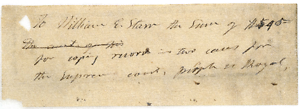 To William E. Starr the Sum of $5.45
for copying record in two cases for
the supreme court, people vs Royal,